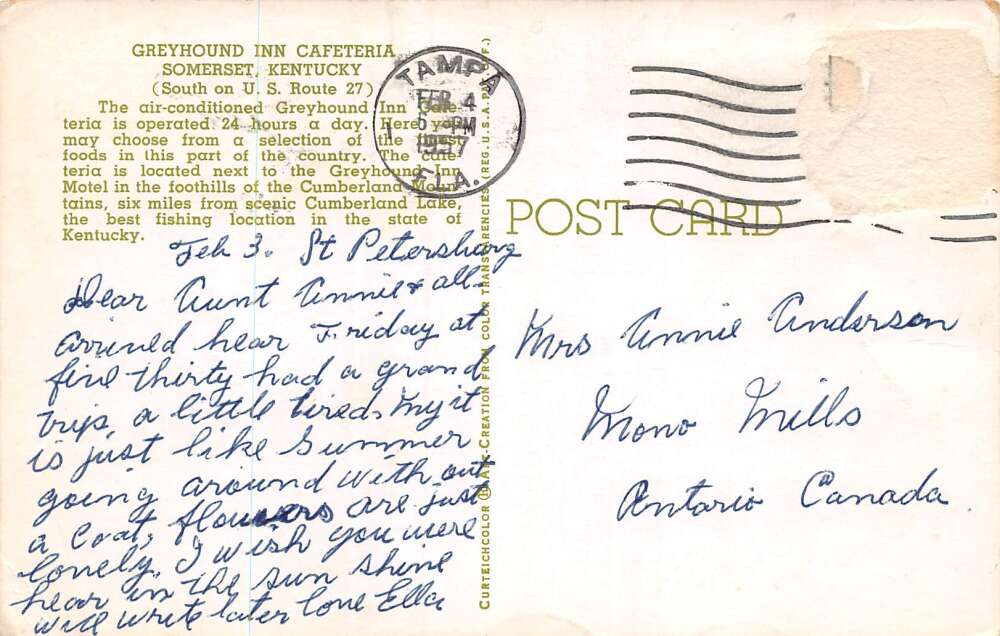 GREYHOUND INN CAFETERIA
SOMERSET, KENTUCKY
(South on U. S. Route 27)
The air-conditioned Greyhound Inn Cafe-
teria is operated 24 hours a day. Here you
may choose from a selection of the finest
foods in this part of the country. The cafe-
teria is located next to the Greyhound Inn
Motel in the foothills of the Cumberland Moun-
tains, six miles from scenic Cumberland Lake,
the best fishing location in the state of
Kentucky.
TAMPA
FEB 4
6 PM
1957
FLA.
Feb 3. St Petersburg
Dear Aunt Annie & all.
arrived hear Friday at
five thirty had a grand
trip, a little tired. My it
is just like Summer
going around with out
a coat, flowers are just
lovely. I wish you were
hear in the sun shine
will write later love Ella
CURTEICHCOLOR ® ART-CREATION FROM COLOR TRANSPARENCIES (REG. U.S.A. PAT. OFF.)
POST CARD
Mrs Annie Anderson
Mono Mills
Ontario Canada